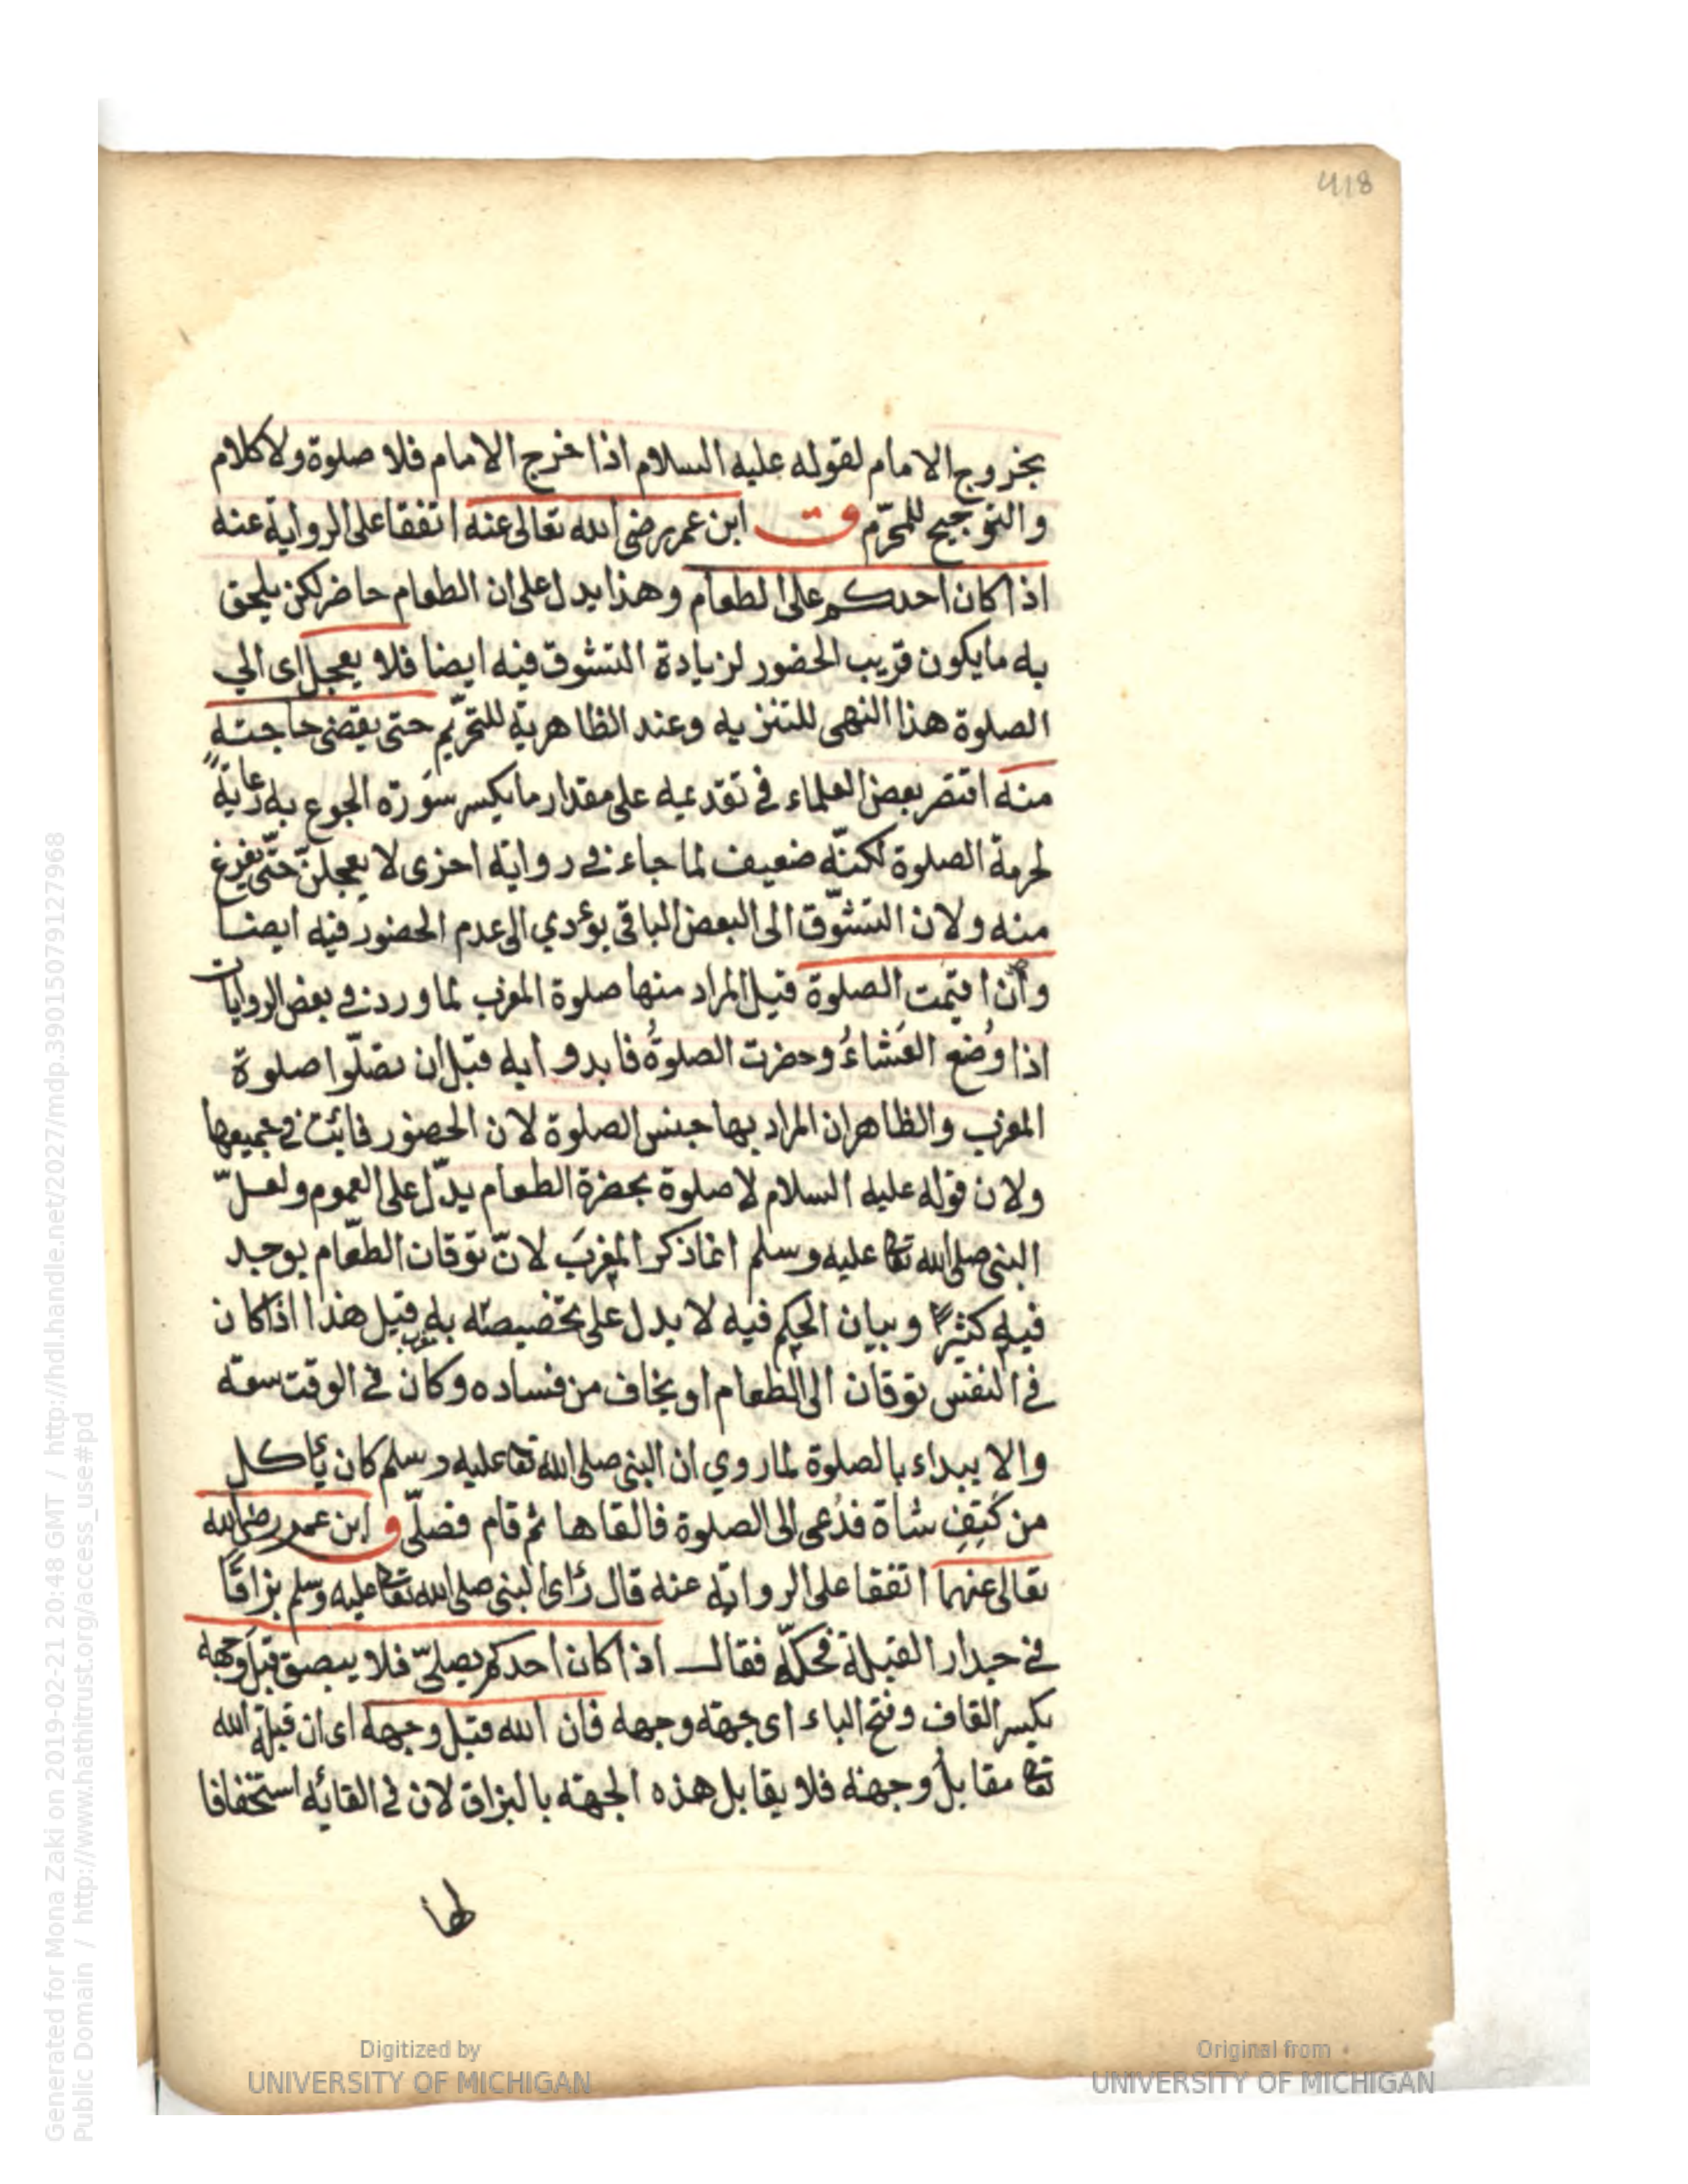 418
بخروج الامام لقوله عليه السلام اذا خرج الامام فلا صلوة ولا كلام
والترجيح للمحرّم ق ابن عمر رضى الله تعالى عنه اتفقا على الرواية عنه
اذا كان احدكم على الطعام وهذا يدل على ان الطعام حاضر لكن يلحق
به ما يكون قريب الحضور لزيادة التشوق فيه ايضا فلا يعجل اى الي
الصلوة هذا النهى للتنزيه وعند الظاهرية للتحريم حتى يقضى حاجته
منه اقتصر بعض العلماء في تقديمه على مقدار ما يكسر سَوْرَة الجوع به رعاية
لحرمة الصلوة لكنّه ضعيف لما جاء في رواية اخرى لا يعجلنّ حتّى يفرغ
منه ولان التشوّق الى البعض الباقى يؤدي الى عدم الحضور فيه ايضا
وأن اقيمت الصلوة قيل المراد منها صلوة المغرب لما ورد في بعض الروايات
اذا وُضع العَشاءُ وحضرت الصلوةُ فابدوا به قبل ان تصلّوا صلوة
المغرب والظاهر ان المراد بها جنس الصلوة لان الحضور فائت في جميعها
ولان قوله عليه السلام لا صلوة بحضرة الطعام يدّل على العموم ولعلّ
النبى صلى الله تعا عليه وسلم انما ذكر المغربَ لانّ توقان الطّعام يوجد
فيه كثيرًا وبيان الحكم فيه لا يدل على تخصيصه به قيل هذا اذا كان
في النفس توقان الى الطعام او يخاف من فساده وكان في الوقت سعة
والا يبداء بالصلوة لما روي ان النبى صلى الله تعا عليه وسلم كان يأكل
من كَتِفِ شاة فدُعى الى الصلوة فالقاها ثم قام فصلّى ق ابن عمر رضى الله
تعالى عنهما اتفقا على الرواية عنه قال رأى النبى صلى الله تعا عليه وسلم بزاقًا
في جدار القبلة فحكّه فقال اذا كان احدكم يصلىّ فلا يبصق قِبَل وجهه
بكسر القاف وفتح الباء اى جهة وجهه فان الله قبل وجهه اى ان قبلة الله
تعا مقابلُ وجهه فلا يقابل هذه الجهة بالبزاق لان في القائه استخفافا
لها
Generated for Mona Zaki on 2019-02-21 20:48 GMT / http://hdl.handle.net/2027/mdp.39015079127968
Public Domain / http://www.hathitrust.org/access_use#pd
Digitized by
UNIVERSITY OF MICHIGAN
Original from
UNIVERSITY OF MICHIGAN